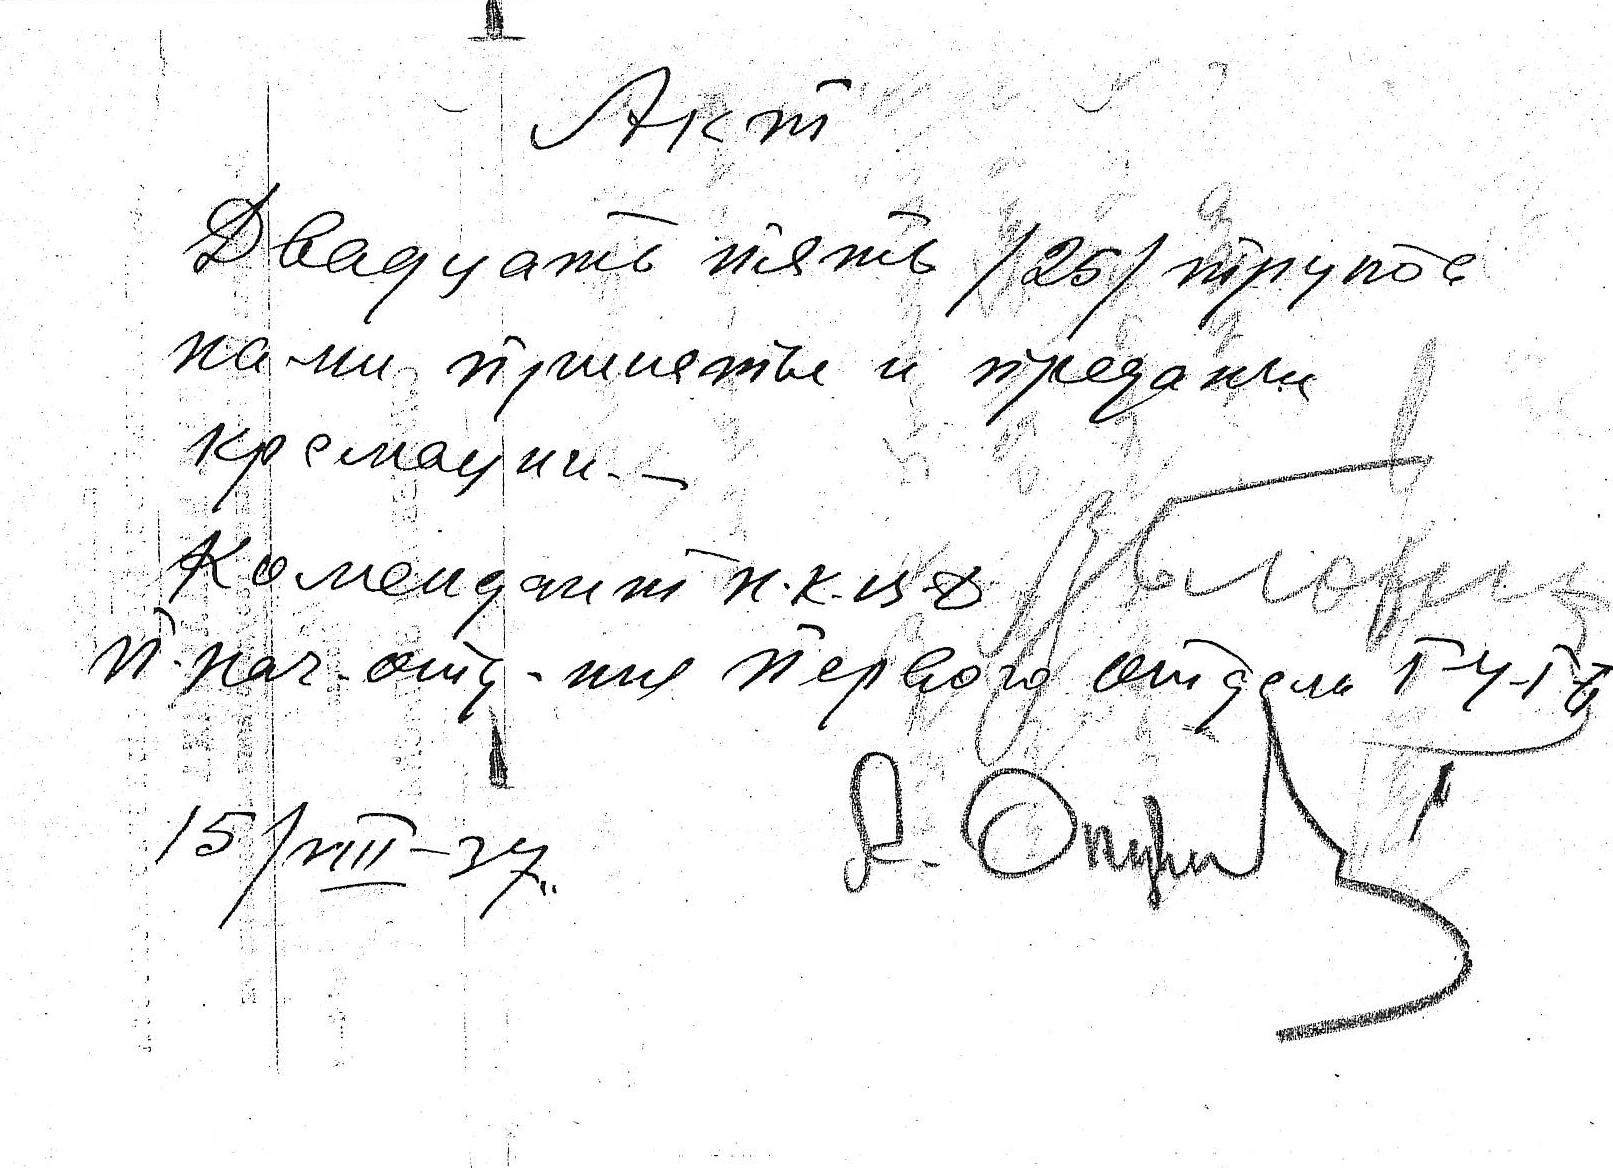 Акт
Двадцать пять /25/ трупов
нами приняты и преданы
кремации. —
Комендант Н.К.В.Д
П.нач.отд-ния Первого отдела Г-У-Г-Б
15/VIII-37„